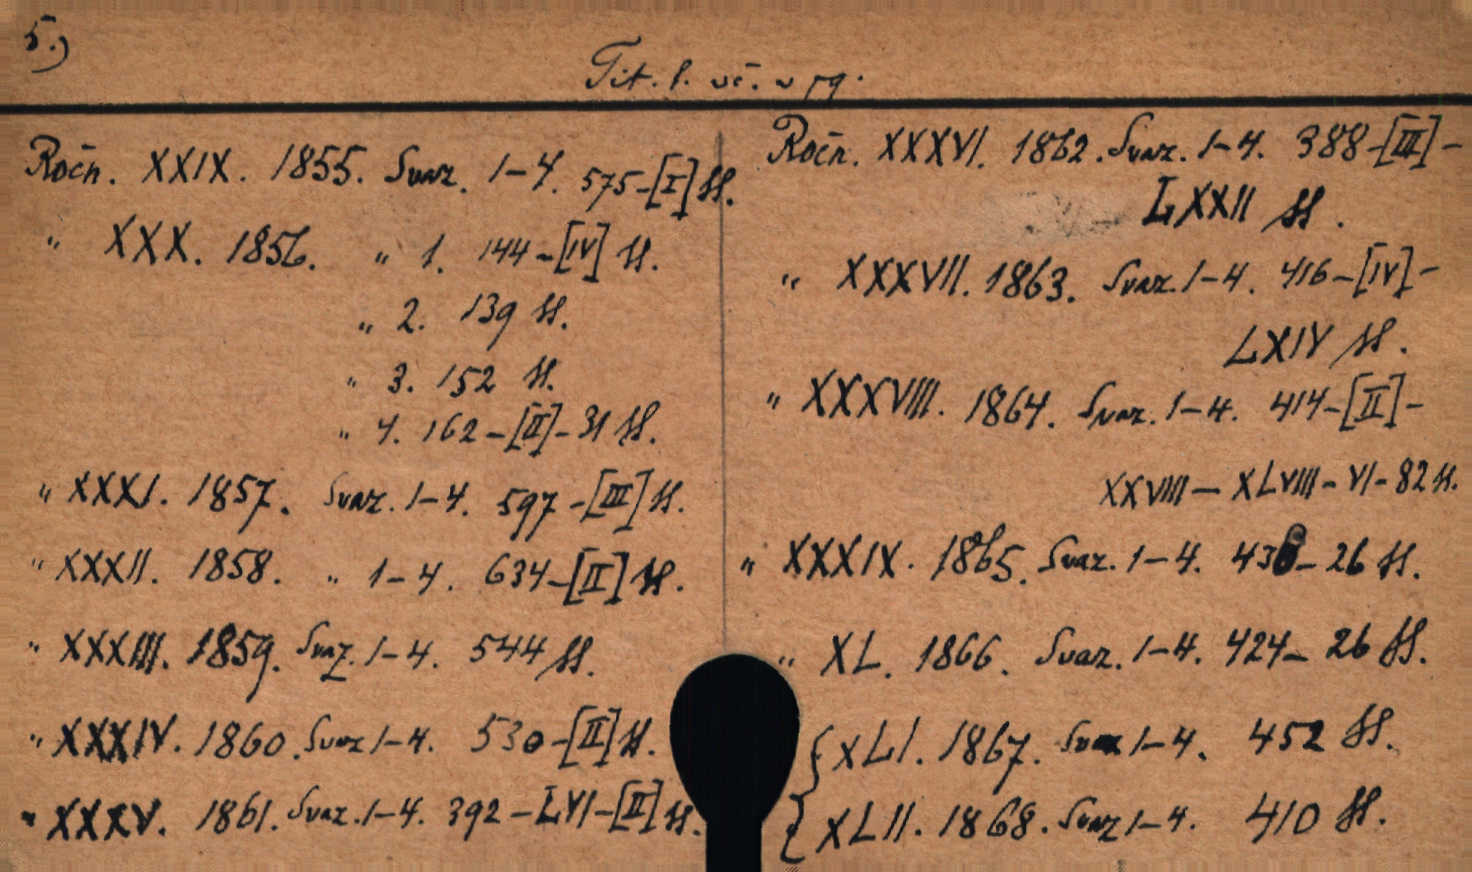 5.)
Tit. l. uč. v pg.
Ročn. XXIX. 1855. Svaz. 1-4. 575-[I] SS.
" XXX. 1856. " 1. 144-[IV] SS.
" 2. 139 SS.
" 3. 152 SS.
" 4. 162-[II]-31 SS.
" XXXI. 1857. Svaz. 1-4. 597-[III] SS.
" XXXII. 1858. " 1-4. 634-[II] SS.
" XXXIII. 1859. Svaz. 1-4. 544 SS.
" XXXIV. 1860. Svaz 1-4. 530-[II] SS.
" XXXV. 1861. Svaz. 1-4. 392-LVI-[II] SS.
Ročn. XXXVI. 1862. Svaz. 1-4. 388-[III]-
LXXII SS.
" XXXVII. 1863. Svaz. 1-4. 416-[IV]-
LXIV SS.
" XXXVIII. 1864. Svaz. 1-4. 414-[II]-
XXVIII-XLVIII-VI-82 SS.
" XXXIX. 1865. Svaz. 1-4. 436-26 SS.
" XL. 1866. Svaz. 1-4. 424-26 SS.
{ XLI. 1867. Svaz 1-4. 452 SS.
{ XLII. 1868. Svaz 1-4. 410 SS.